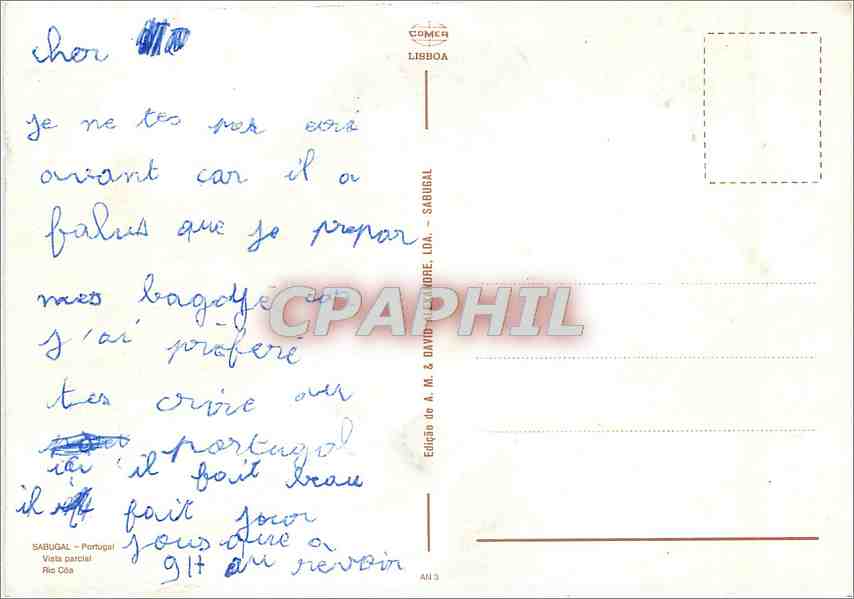 cher
je ne tes pas ecri
avant car il a
falus que je prepar
mes bagagé car
j'ai préferé
tes crire au
portugal
ici il fait beau
il fait jour
jousque a
9H au revoir
SABUGAL – Portugal
Vista parcial
Rio Côa
COMER
LISBOA
Edição de A. M. & DAVID ALEXANDRE, LDA. – SABUGAL
AN 3
CPAPHIL